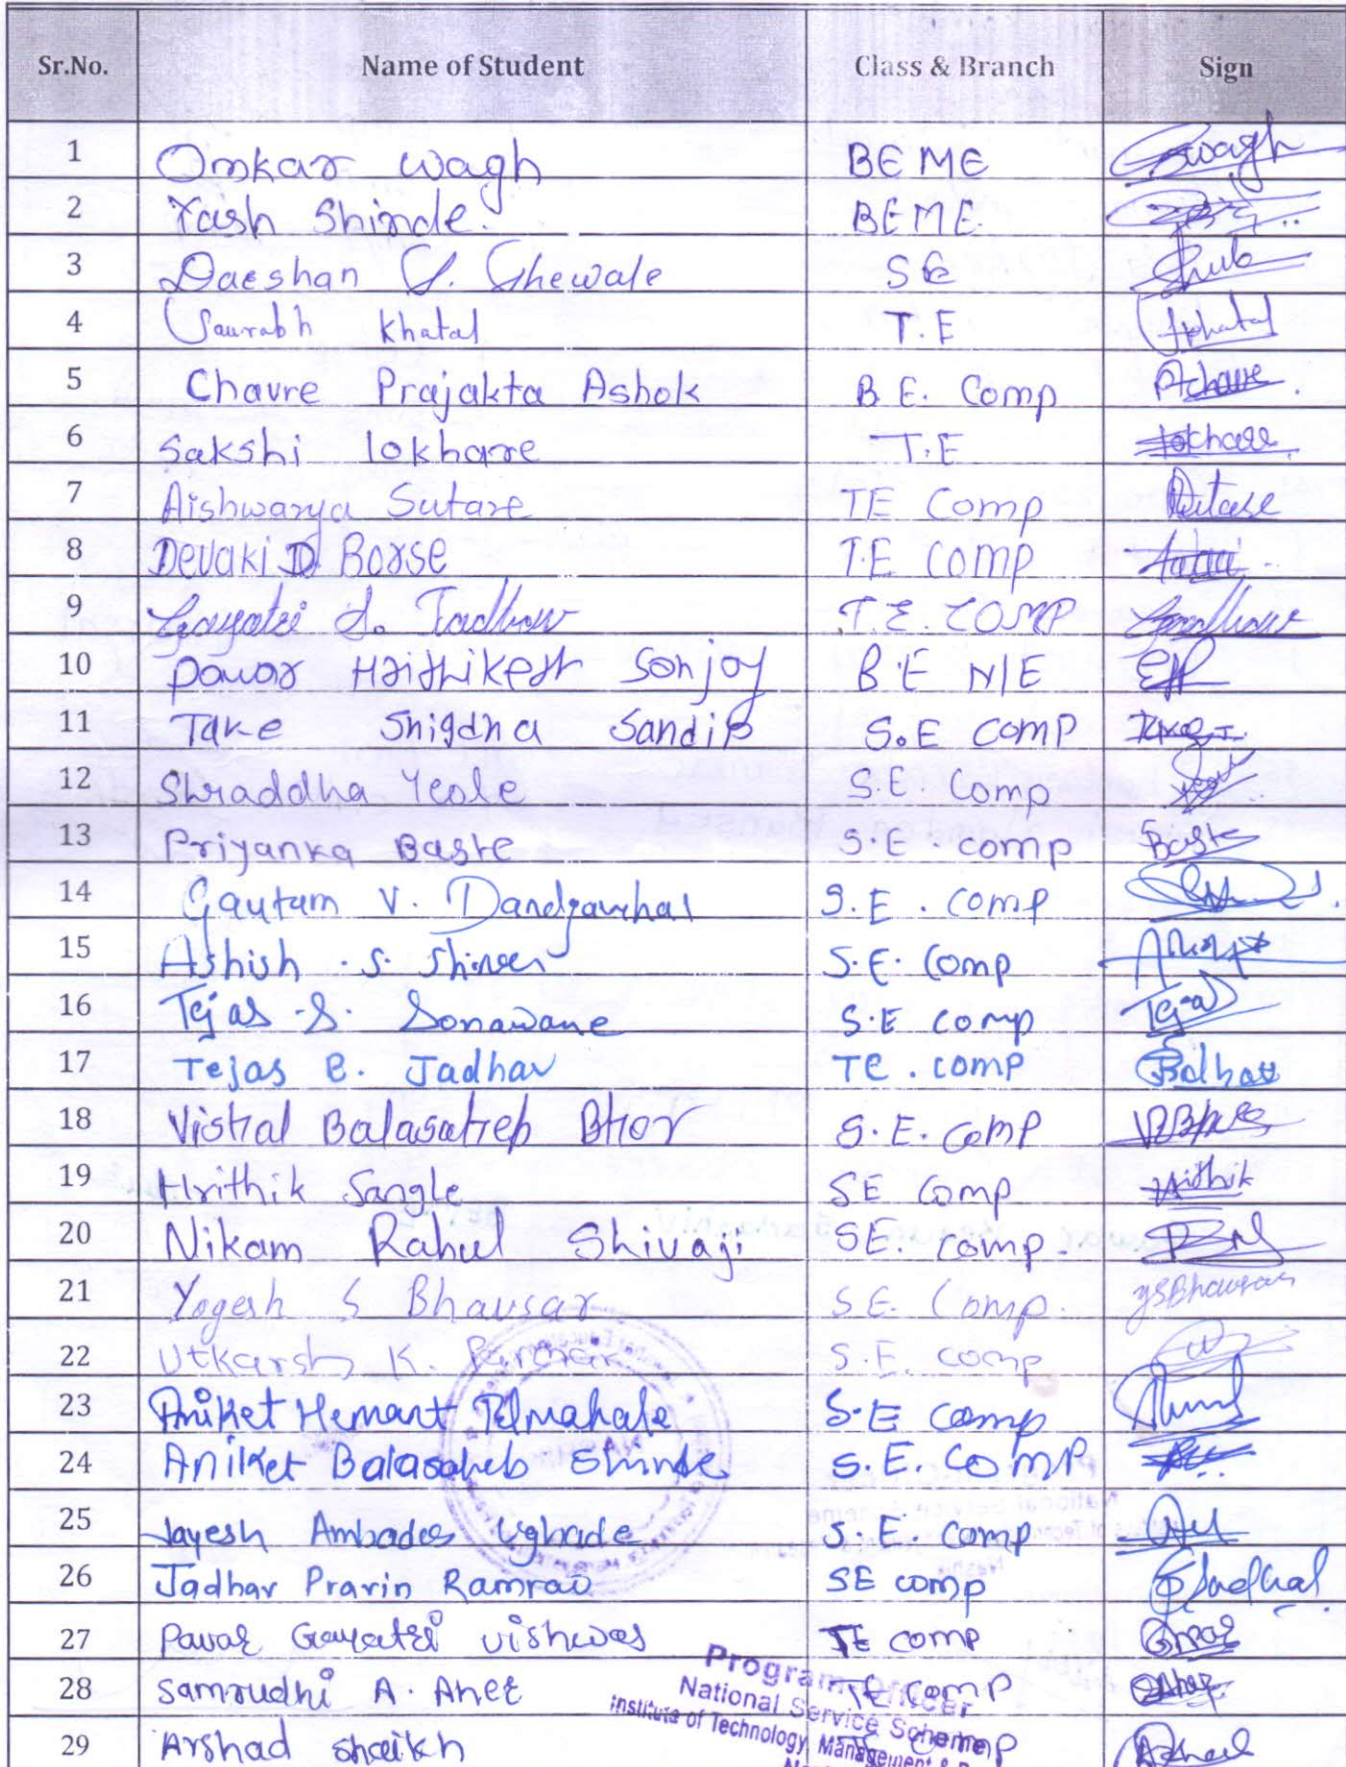 Sr.No. Name of Student Class & Branch Sign
1 Omkar wagh BE ME Swagh
2 Yash Shinde. BE ME.
3 Daeshan S. Shewale SE
4 Saurabh Khatal T.E Skhatal
5 Chavre Prajakta Ashok B.E. Comp
6 Sakshi lokhare T.E
7 Aishwarya Sutare TE Comp
8 Devaki D. Borse T.E COMP
9 Gayatri S. Jadhav T.E. COMP
10 Pawar Hrithikesh Sanjay B.E M/E
11 Take Snigdha Sandip S.E COMP
12 Shraddha Yeole S.E. Comp
13 Priyanka Baste S.E. comp Baste
14 Gautam V. S.E. comp
15 Ashish .S. S.E. Comp
16 Tejas .S. Sonawane S.E comp Tejas
17 Tejas B. Jadhav TE. comp
18 Vishal Balasaheb Bhor S.E. Comp
19 Hrithik Sangle SE Comp Hrithik
20 Nikam Rahul Shivaji SE. comp.
21 Yogesh S Bhavsar S.E. Comp. YSBhavsar
22 Utkarsh K. S.E. comp
23 Aniket Hemant Telmahale S.E comp
24 Aniket Balasaheb Shinde S.E. Comp
25 Jayesh Ambadas Ughade S.E. comp
26 Jadhav Pravin Ramrao SE comp
27 Pawar Gayatri vishwas TE comp
28 Samrudhi A. Aher TE Comp
29 Arshad shaikh
Program Officer
National Service Scheme
Institute of Technology, Management &